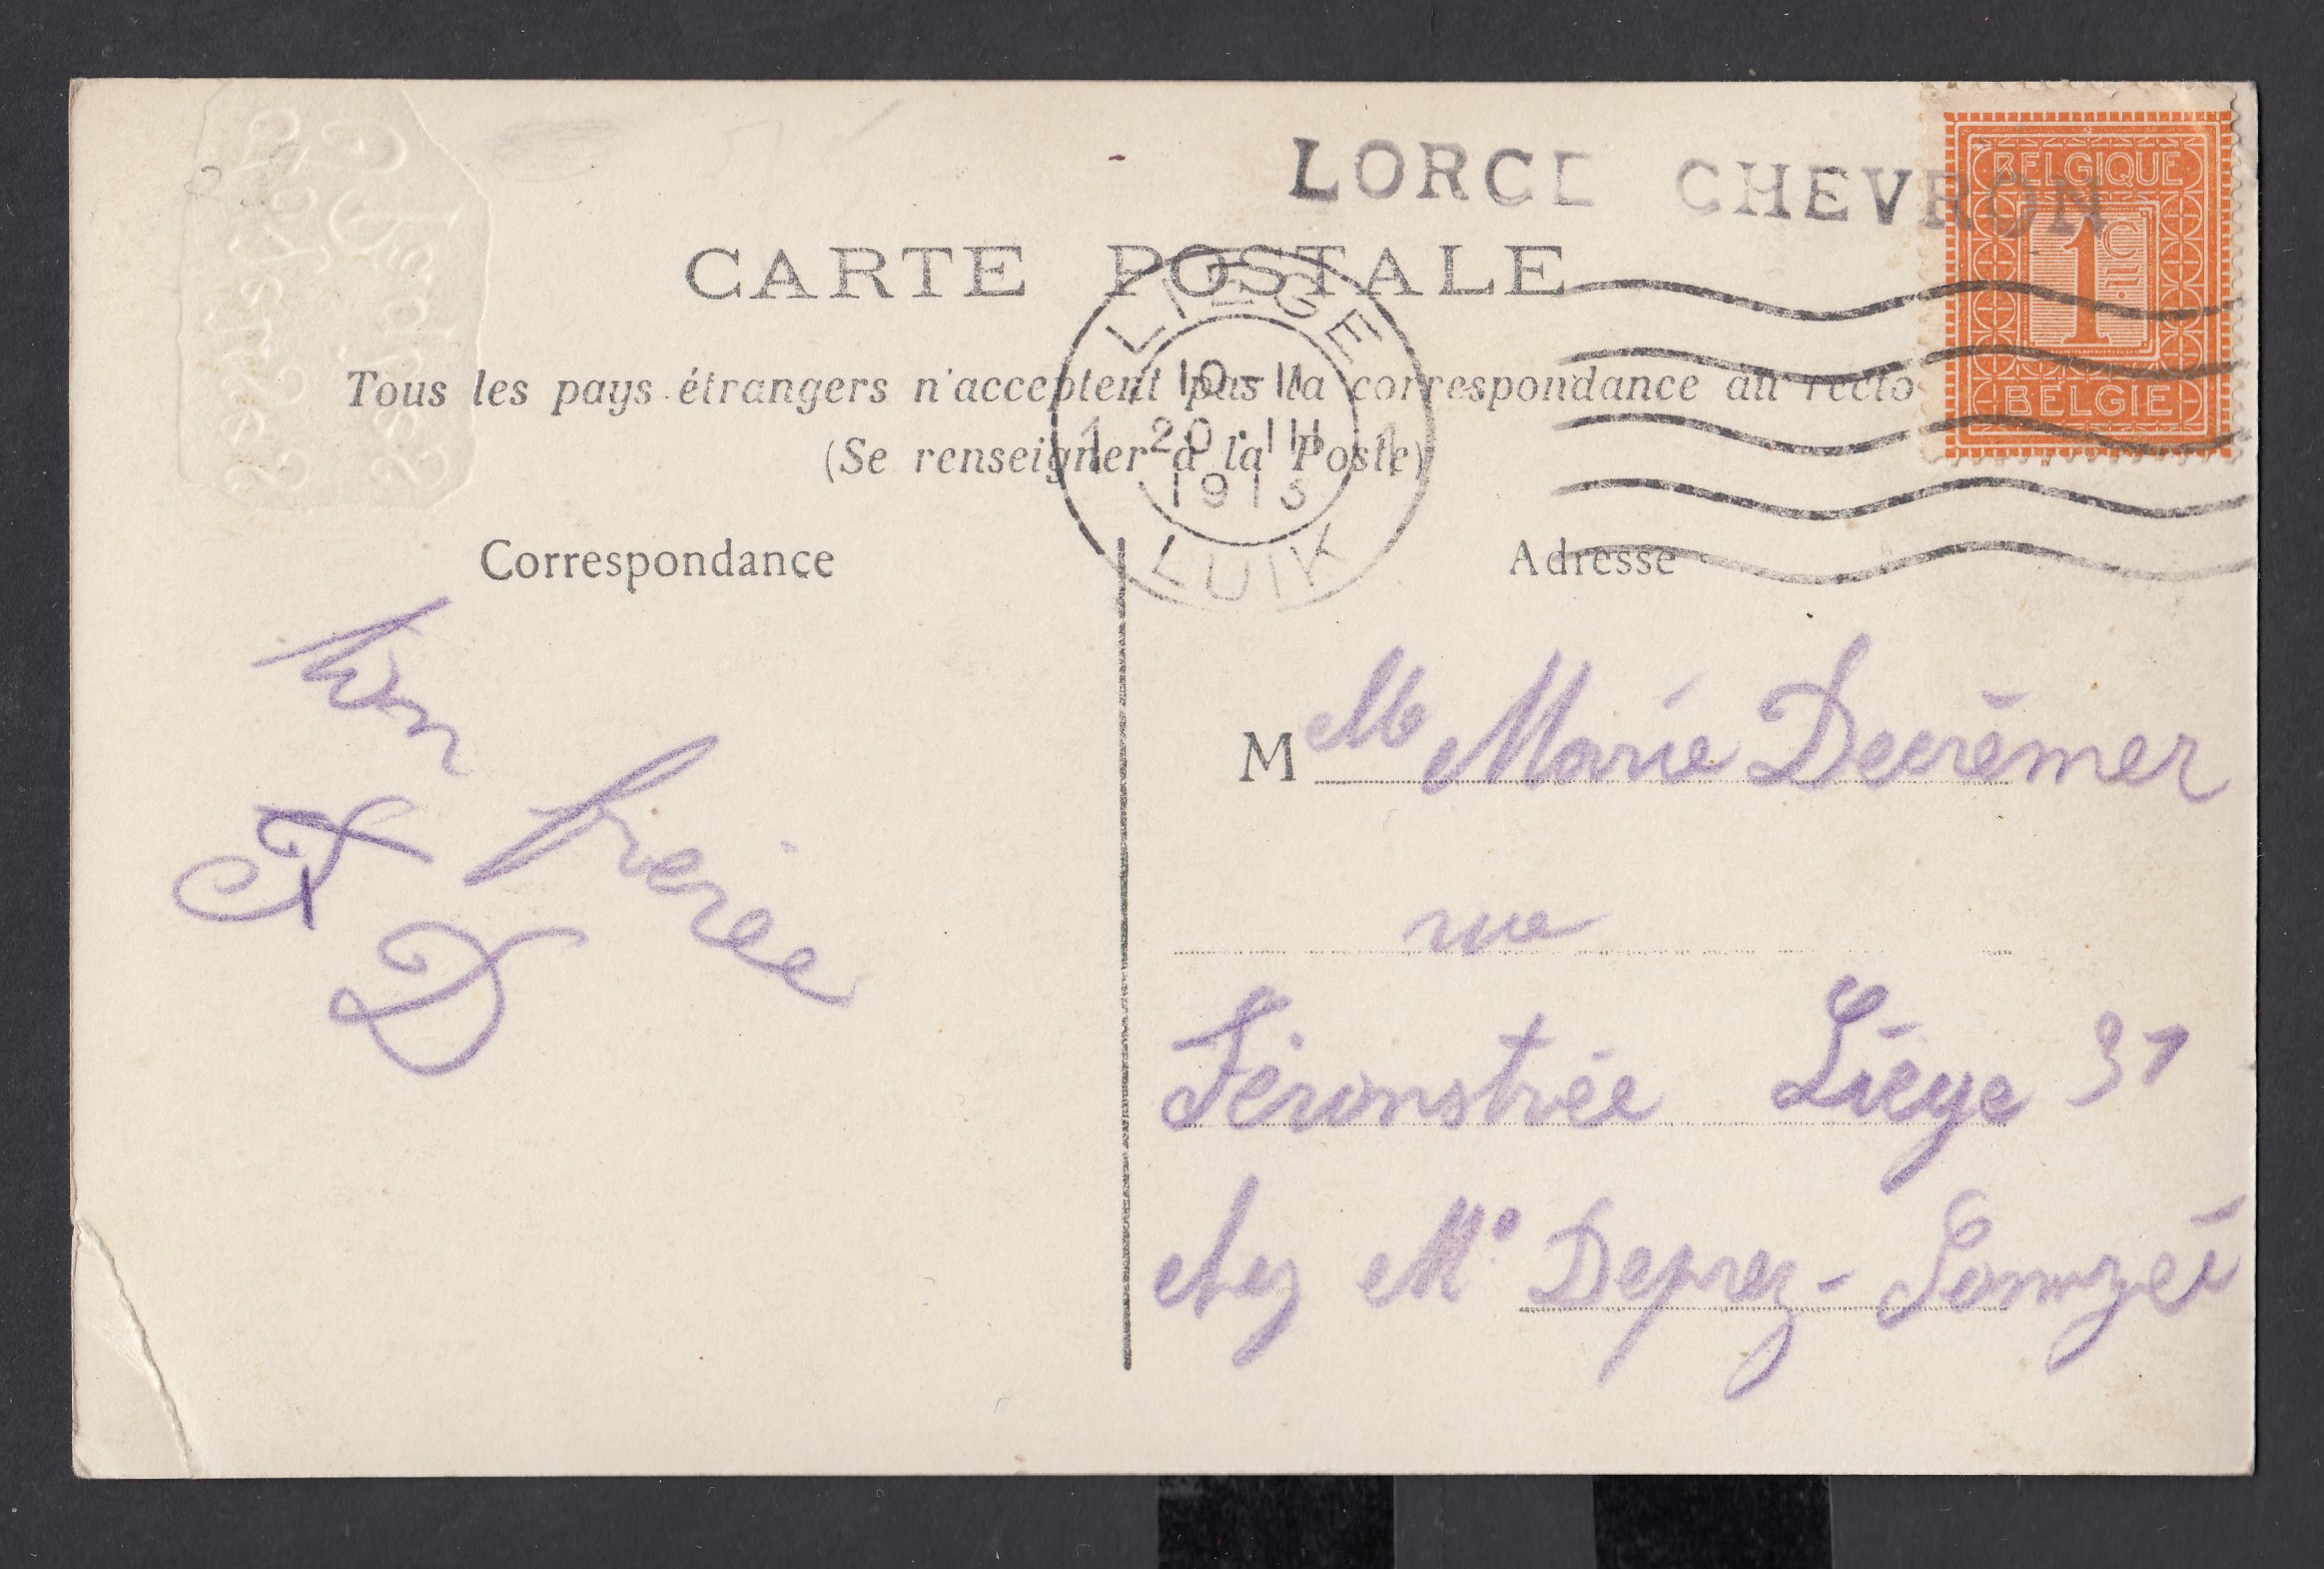 LORCE CHEVRON
BELGIQUE
1C
BELGIE
CARTE POSTALE
LIEGE
10-11
1 20·III 1
1913
LUIK
Tous les pays étrangers n'acceptent pas la correspondance au recto
(Se renseigner à la Poste)
Correspondance
Adresse
frère
D
M elle Marie Decrémer
rue
Féronstrée Liége 31
chez Mr Deprez-